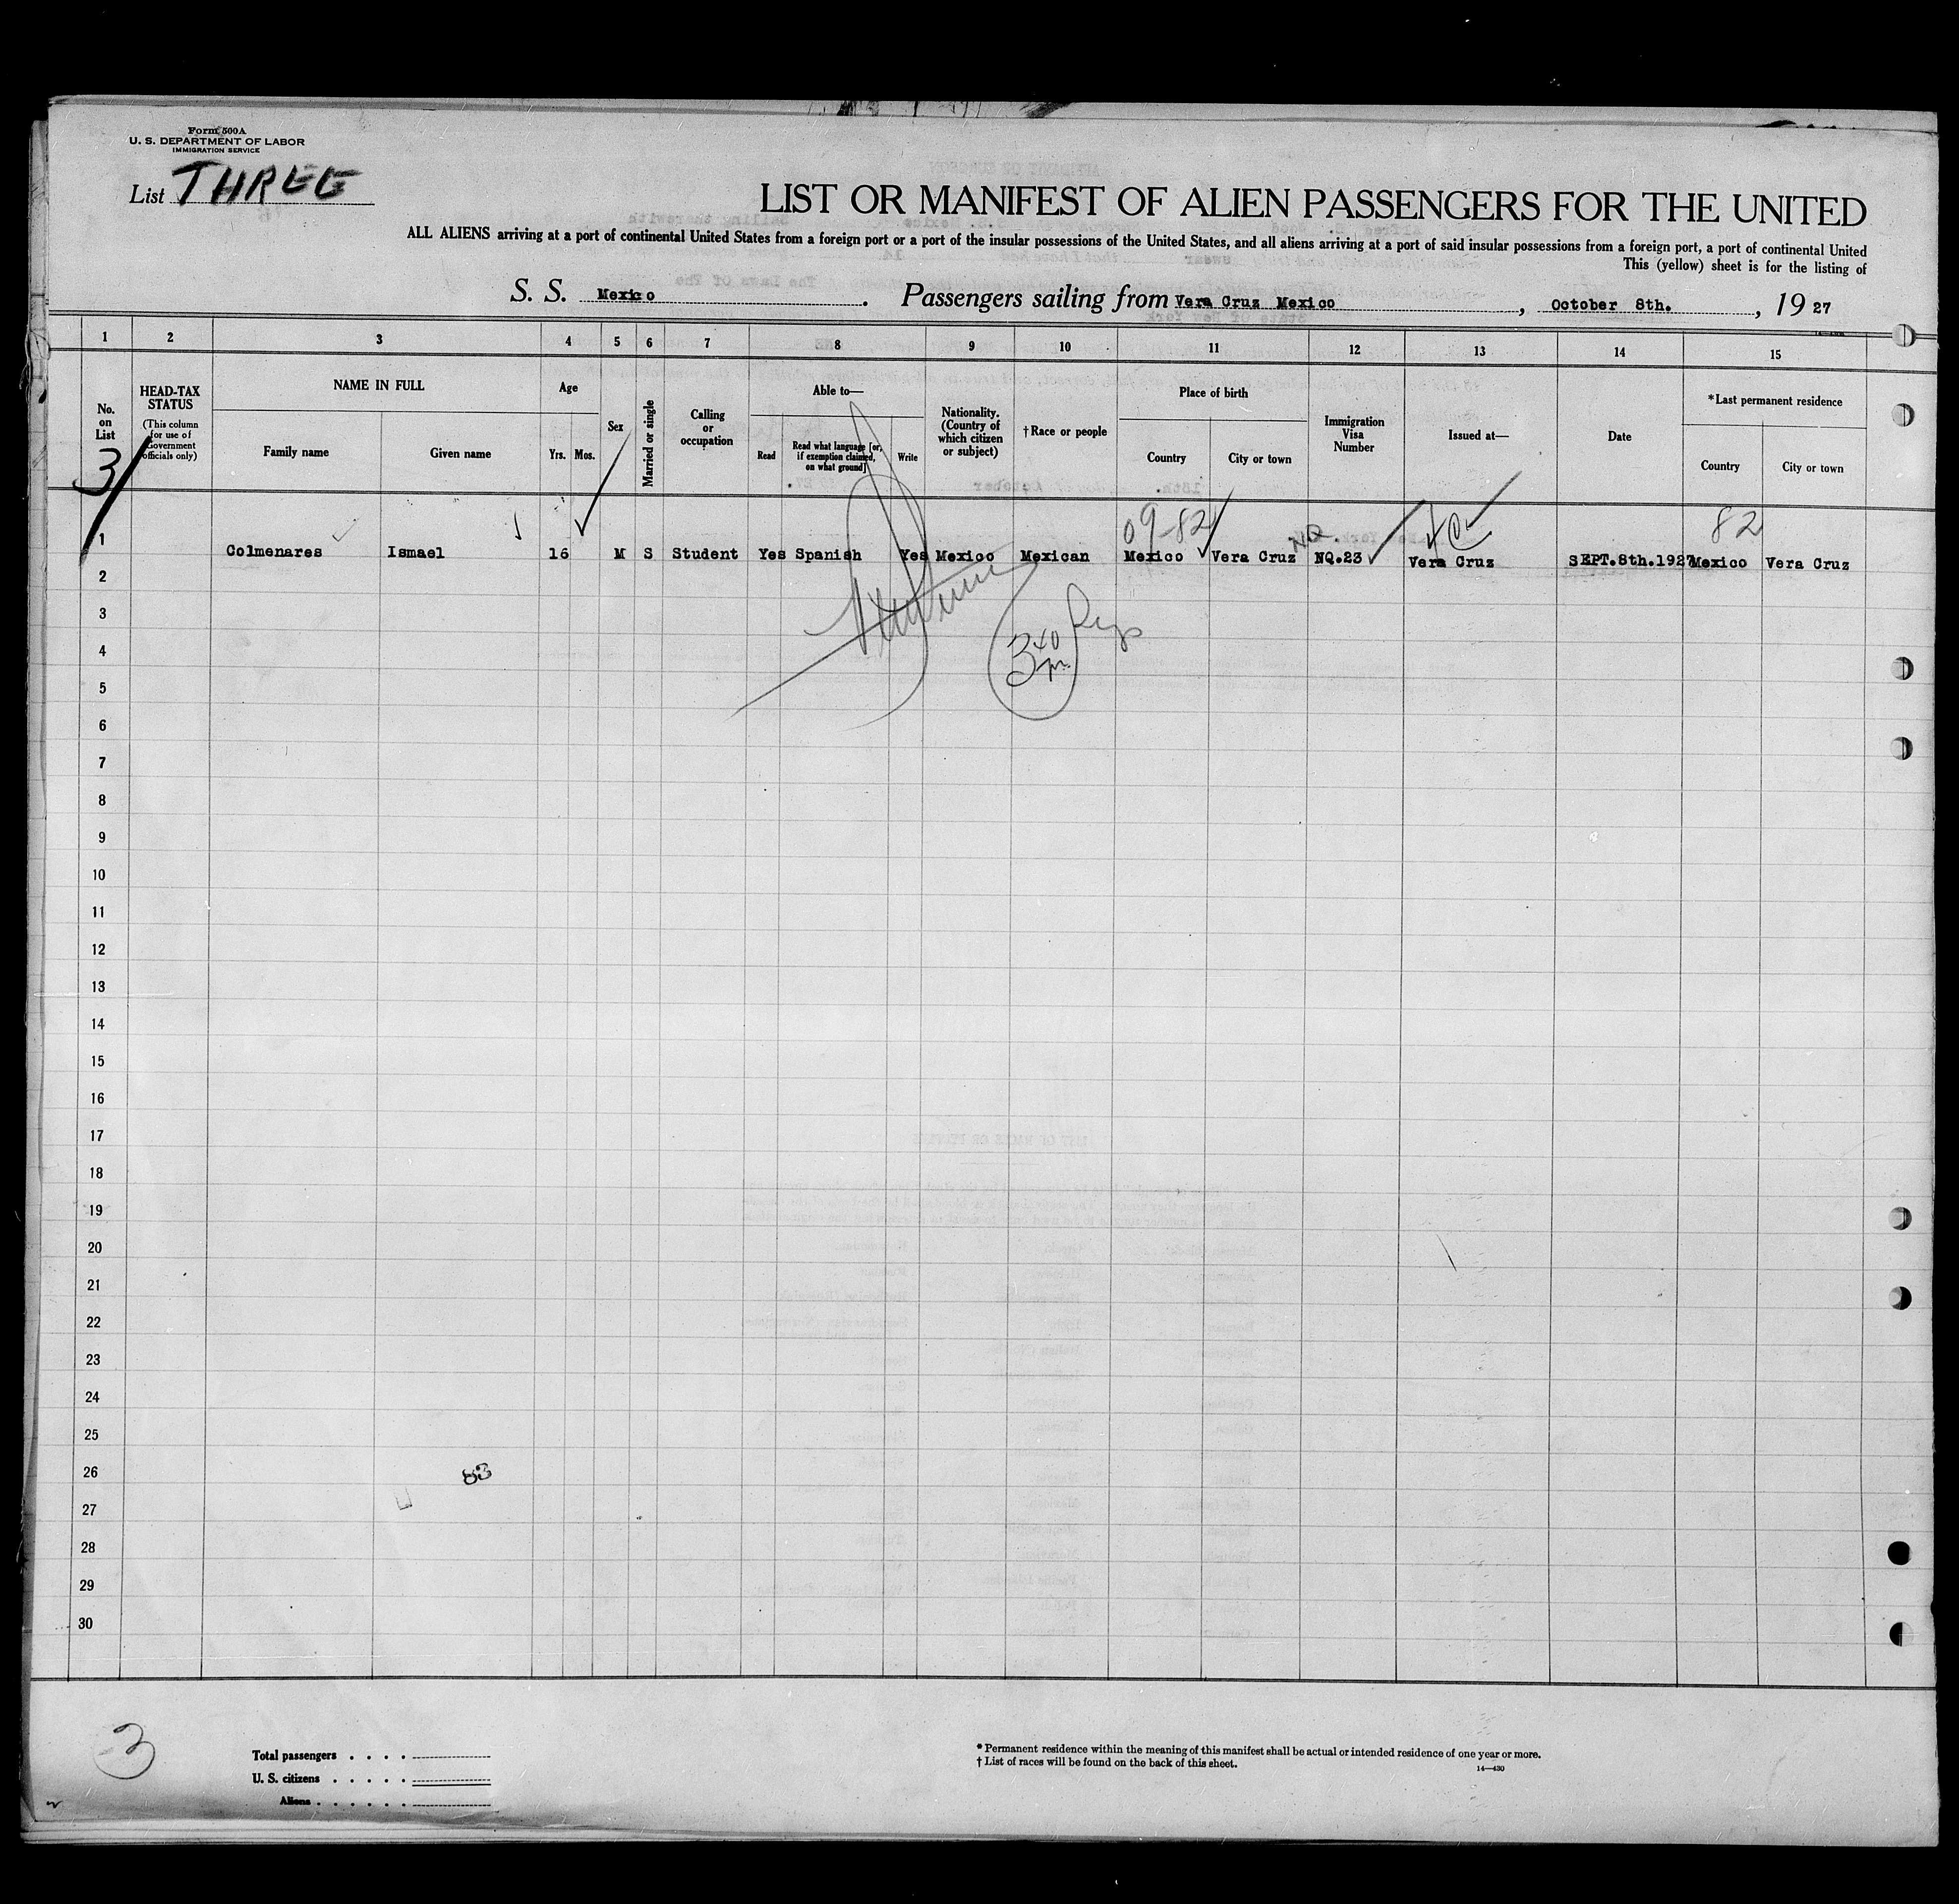 Form 500A
U. S. DEPARTMENT OF LABOR
IMMIGRATION SERVICE
List THREE
LIST OR MANIFEST OF ALIEN PASSENGERS FOR THE UNITED
ALL ALIENS arriving at a port of continental United States from a foreign port or a port of the insular possessions of the United States, and all aliens arriving at a port of said insular possessions from a foreign port, a port of continental United
This (yellow) sheet is for the listing of
S. S. Mexico. Passengers sailing from Vera Cruz Mexico, October 8th., 1927
1 2 3 4 5 6 7 8 9 10 11 12 13 14 15
No. on List
HEAD-TAX STATUS
(This column for use of Government officials only)
NAME IN FULL
Family name
Given name
Age
Yrs. Mos.
Sex
Married or single
Calling or occupation
Able to—
Read
Read what language [or, if exemption claimed, on what ground]
Write
Nationality. (Country of which citizen or subject)
†Race or people
Place of birth
Country
City or town
Immigration Visa Number
Issued at—
Date
*Last permanent residence
Country
City or town
3
09-82
NQ
82
1 Colmenares Ismael 16 M S Student Yes Spanish Yes Mexico Mexican Mexico Vera Cruz NQ.23 Vera Cruz SEPT.8th.1927 Mexico Vera Cruz
2
3
340
4
5
6
7
8
9
10
11
12
13
14
15
16
17
18
19
20
21
22
23
24
25
26
83
27
28
29
30
3
Total passengers . . . .
U. S. citizens . . . . .
Aliens . . . . . .
* Permanent residence within the meaning of this manifest shall be actual or intended residence of one year or more.
† List of races will be found on the back of this sheet.
14—430